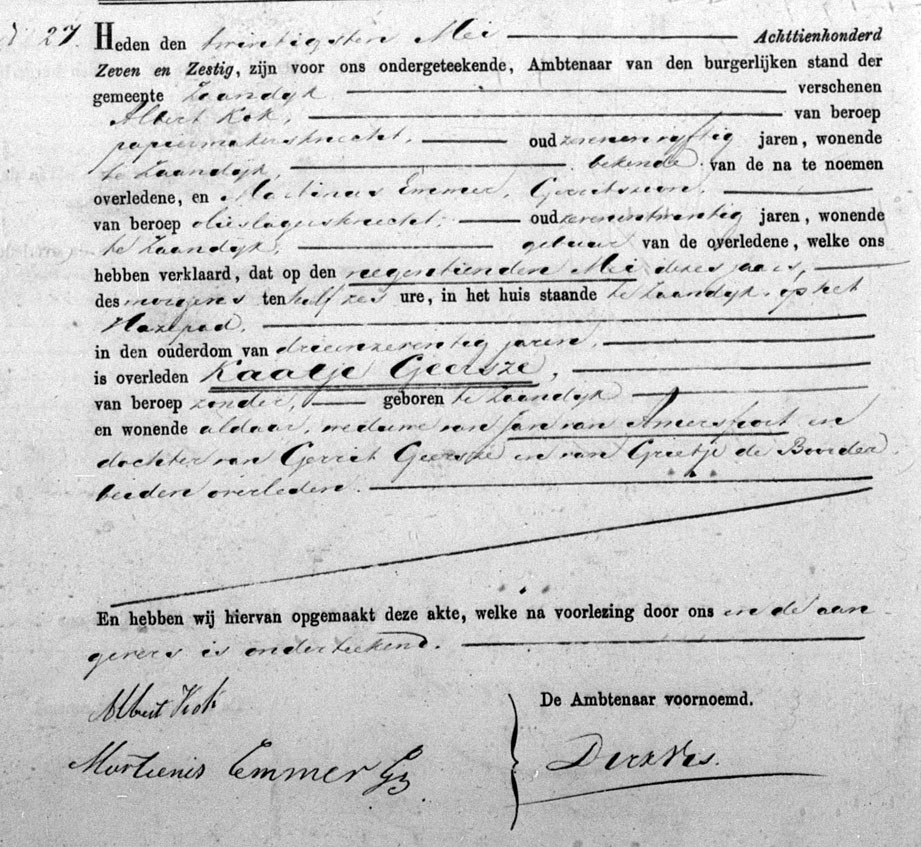 N 27. Heden den twintigsten Mei Achttienhonderd
Zeven en Zestig, zijn voor ons ondergeteekende, Ambtenaar van den burgerlijken stand der
gemeente Zaandyk verschenen
Albert Kok, van beroep
papiermakersknecht, oud zevenenvyftig jaren, wonende
te Zaandyk, bekende van de na te noemen
overledene, en Martinus Emmer, Gerritszoon,
van beroep olieslagersknecht, oud zevenentwintig jaren, wonende
te Zaandyk, gebuur van de overledene, welke ons
hebben verklaard, dat op den negentienden Mei dezes jaars,
des morgens ten half zes ure, in het huis staande te Zaandyk, op het
Hazepad,
in den ouderdom van drieenzeventig jaren,
is overleden Kaatje Geersze,
van beroep zonder, geboren te Zaandyk
en wonende aldaar, weduwe van Jan van Amersfoort en
dochter van Gerrit Geersze en van Grietje de Boorder
beiden overleden.
En hebben wij hiervan opgemaakt deze akte, welke na voorlezing door ons en de aan-
gevers is onderteekend.
Albert Kok
De Ambtenaar voornoemd.
Martienis Emmer Gz
Dirk Vis.